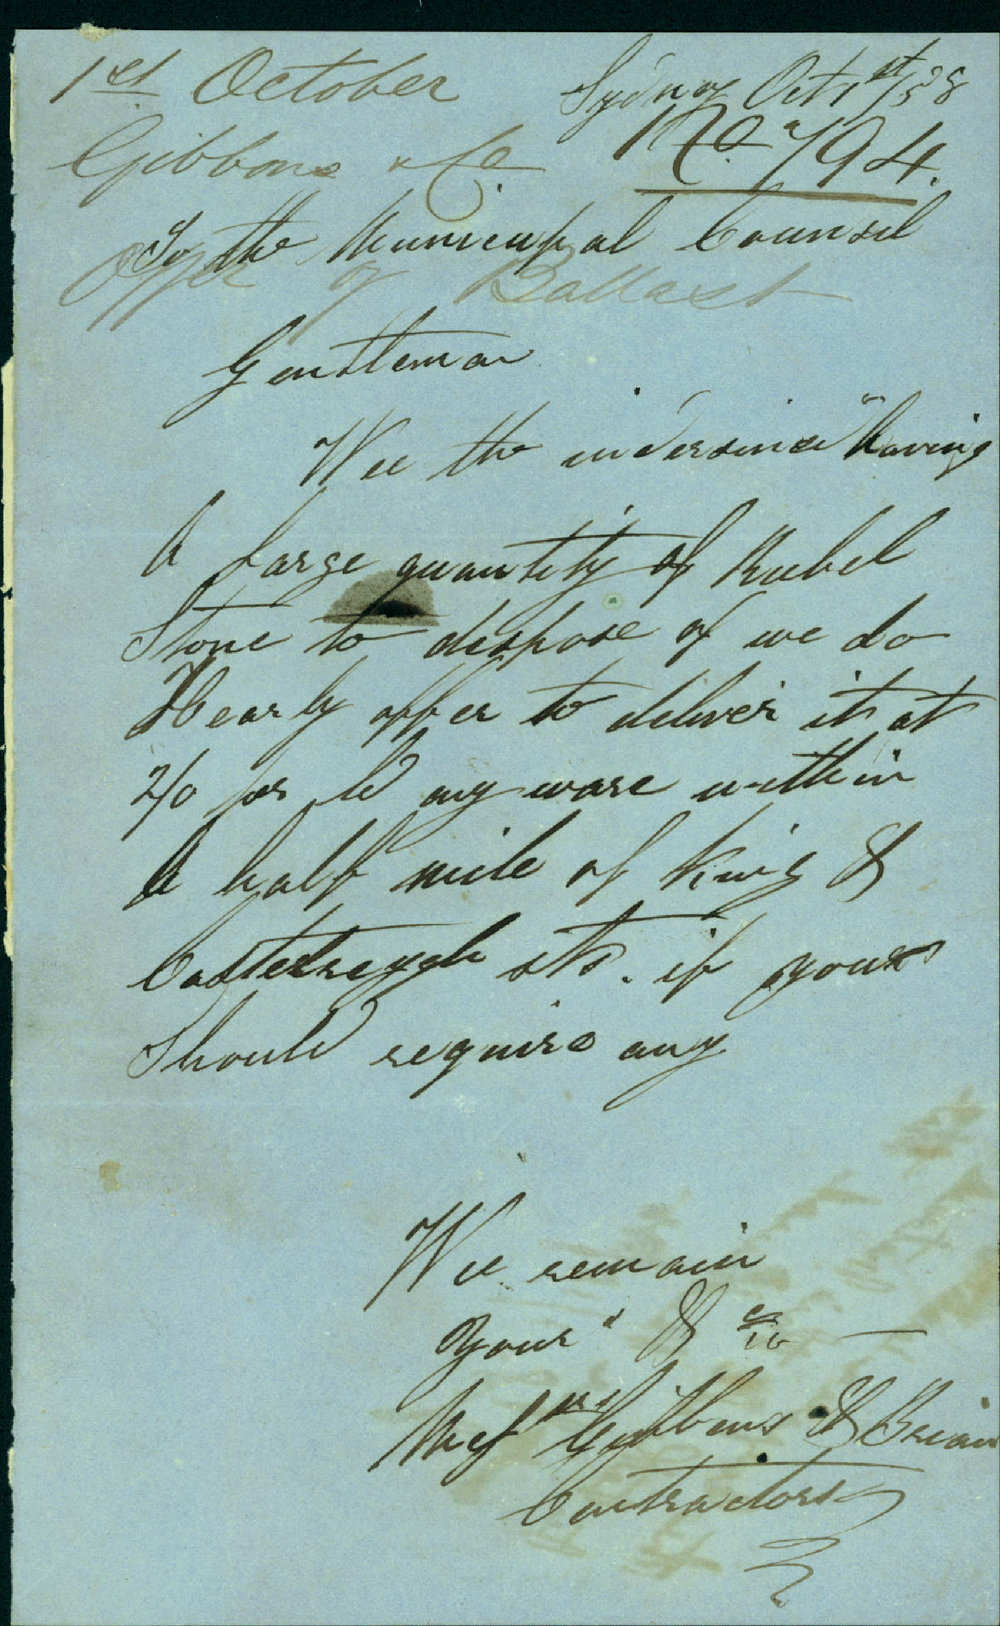 1st October
Sydney Oct 1st/58
Gibbons & Co
No 794.
To the Municipal Counsil
Offer of Ballast
Gentleman
Wee the undersined having
A Large quantity of Rubel
Stone to dispose of we do
Hearby offer to deliver it at
2/0 per ld any ware within
A half mile of King &
Castelreagh sts. if yous
Should require any
Wee remain
Yours &
Messrs Gibbons & Brian
Contractors